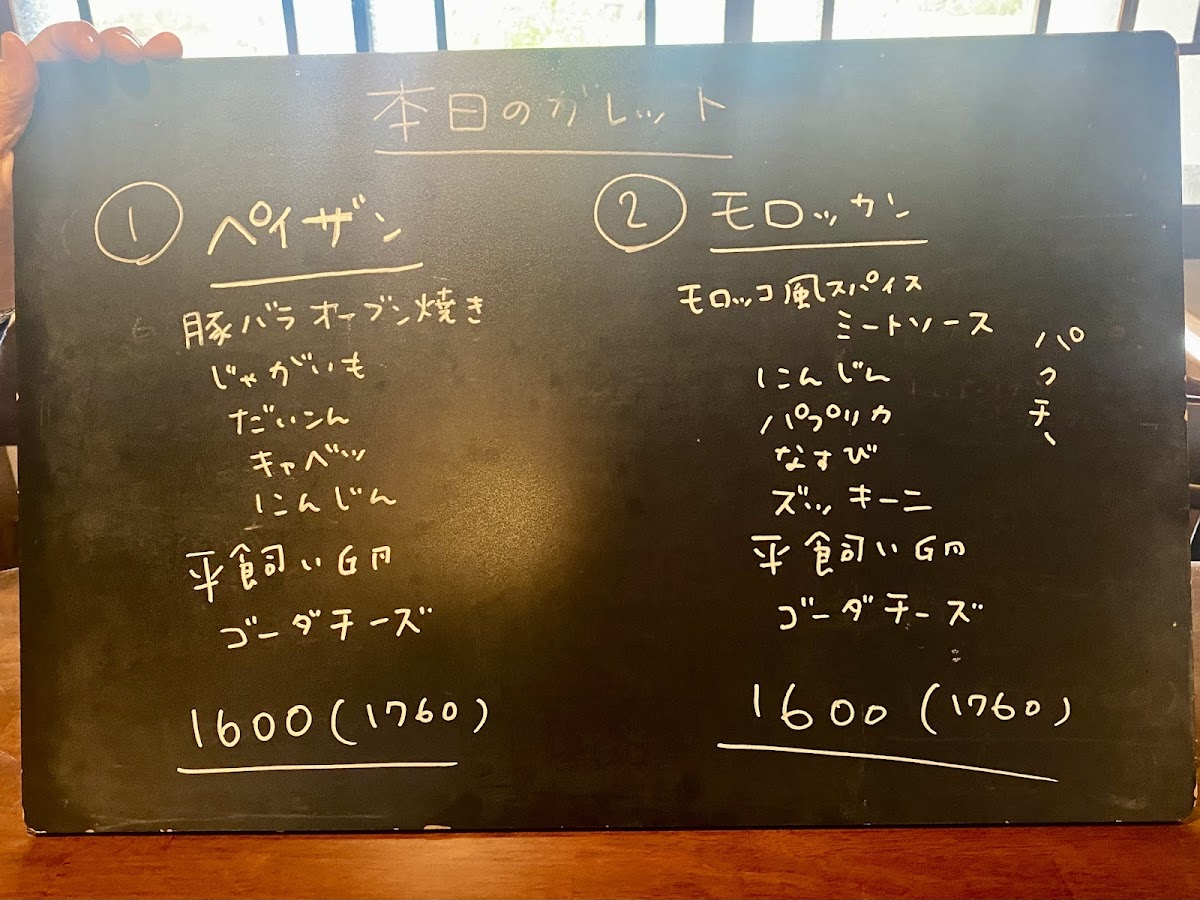 本日のガレット
① ペイザン
豚バラオーブン焼き
じゃがいも
だいこん
キャベツ
にんじん
平飼いG円
ゴーダチーズ
1600(1760)
② モロッカン
モロッコ風スパイス
ミートソース
にんじん
パプリカ
なすび
ズッキーニ
平飼いG円
ゴーダチーズ
1600(1760)
パ
ク
チ